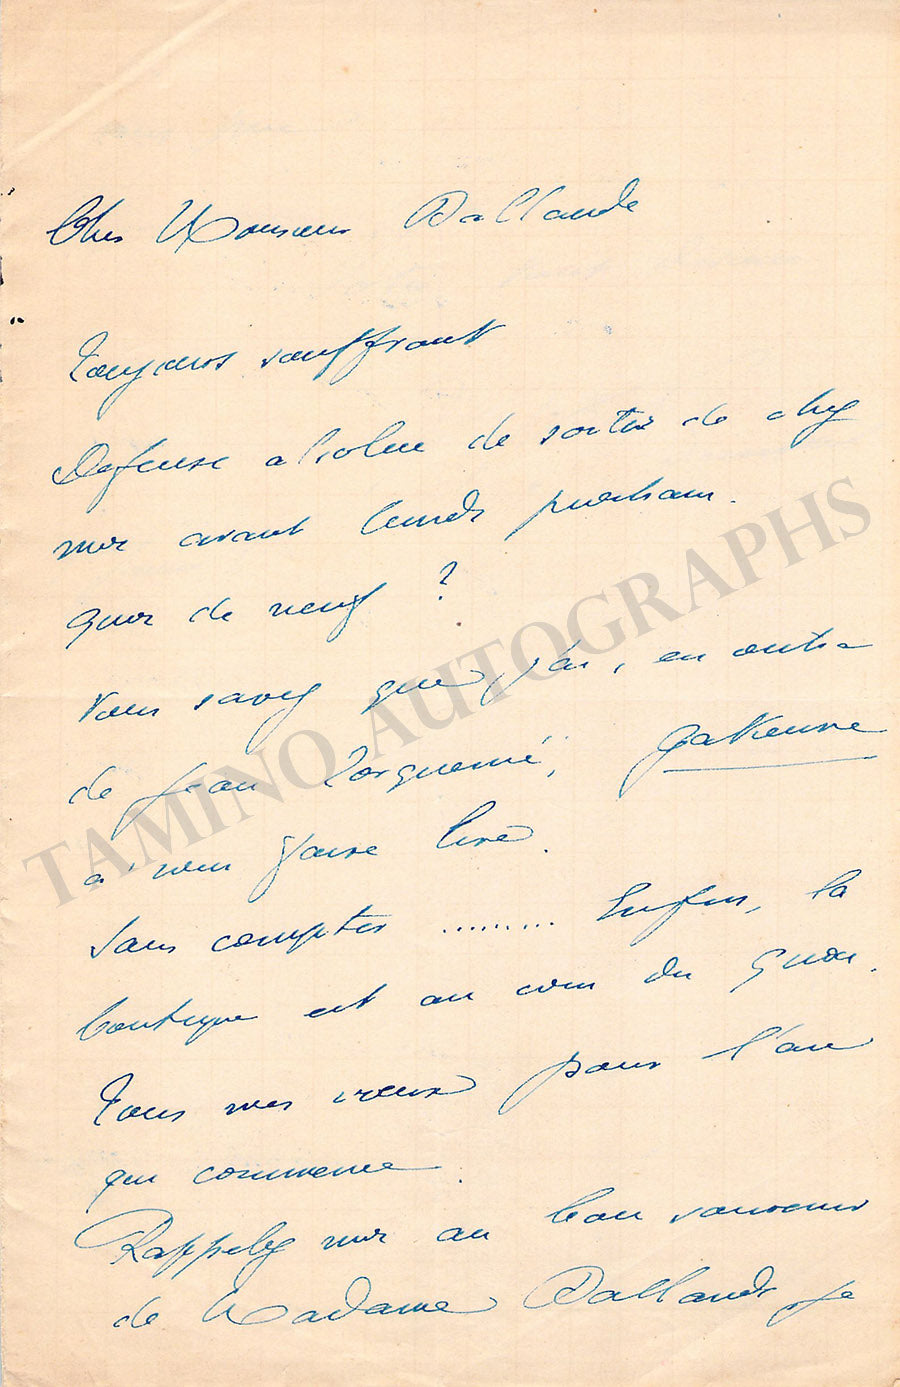 Cher Monsieur Dallande
Toujours souffrant
Défense absolue de sortir de chez
moi avant lundi prochain.
Quoi de neuf ?
Vous savez que j'ai, en outre
de Jean Torquemé, Gatienne
à vous faire lire.
Sans compter ......... Enfin, la
boutique est au coin du quai.
Tous mes vœux pour l'an
qui commence.
Rappelez moi au bon souvenir
de Madame Dallande, je
TAMINO AUTOGRAPHS